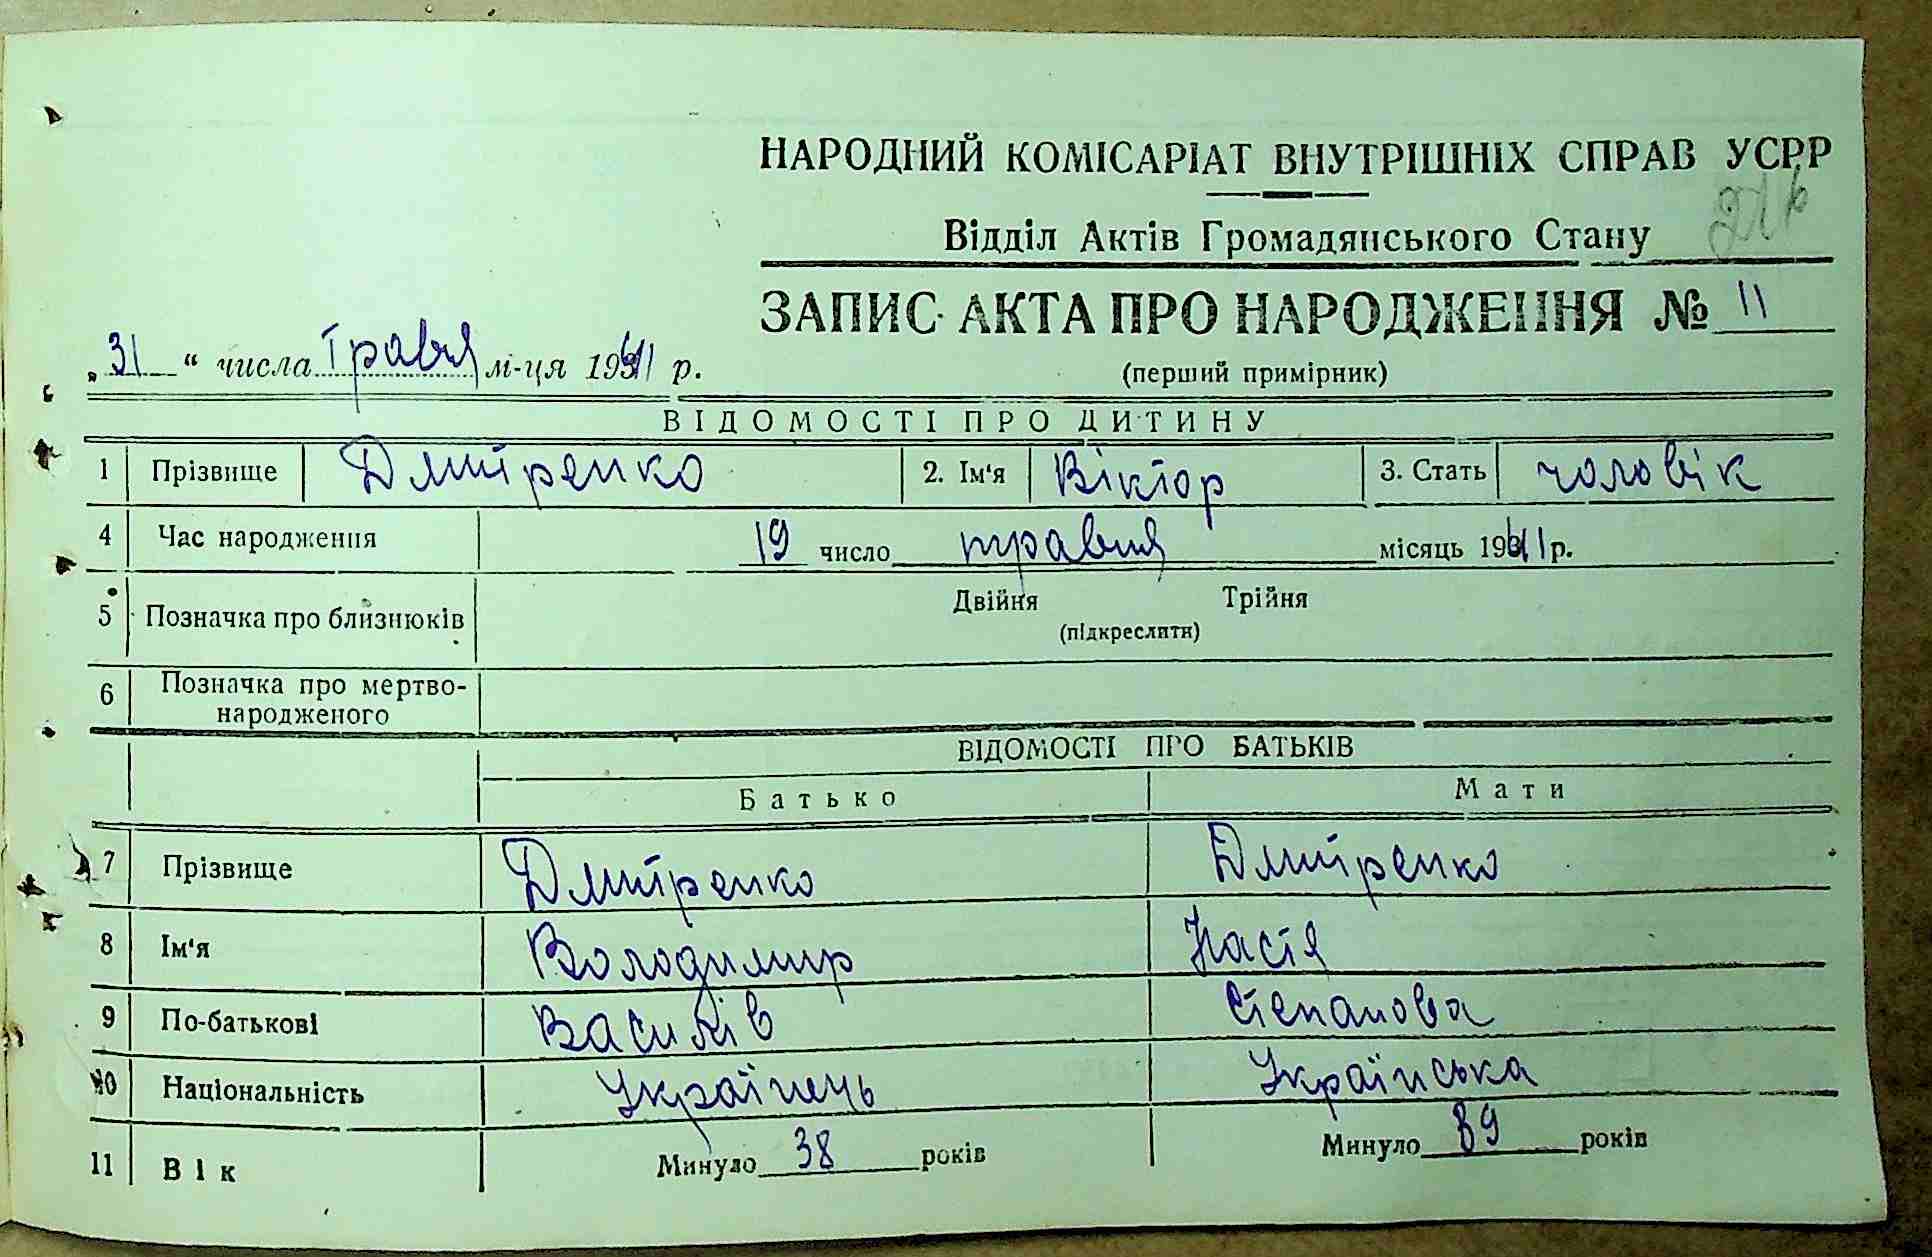 НАРОДНИЙ КОМІСАРІАТ ВНУТРІШНІХ СПРАВ УСРР
Відділ Актів Громадянського Стану
ЗАПИС АКТА ПРО НАРОДЖЕННЯ № 11
(перший примірник)
„31“ числа Травня м-ця 1941 р.
ВІДОМОСТІ ПРО ДИТИНУ
1 Прізвище Дмитренко 2. Ім'я Віктор 3. Стать чоловік
4 Час народження 19 число травня місяць 1941 р.
5 Позначка про близнюків Двійня Трійня
(підкреслити)
6 Позначка про мертво-
народженого
ВІДОМОСТІ ПРО БАТЬКІВ
Батько Мати
7 Прізвище Дмитренко Дмитренко
8 Ім'я Володимир Настя
9 По-батькові Василів Степанова
10 Національність Українець Українська
11 Вік Минуло 38 років Минуло 39 років